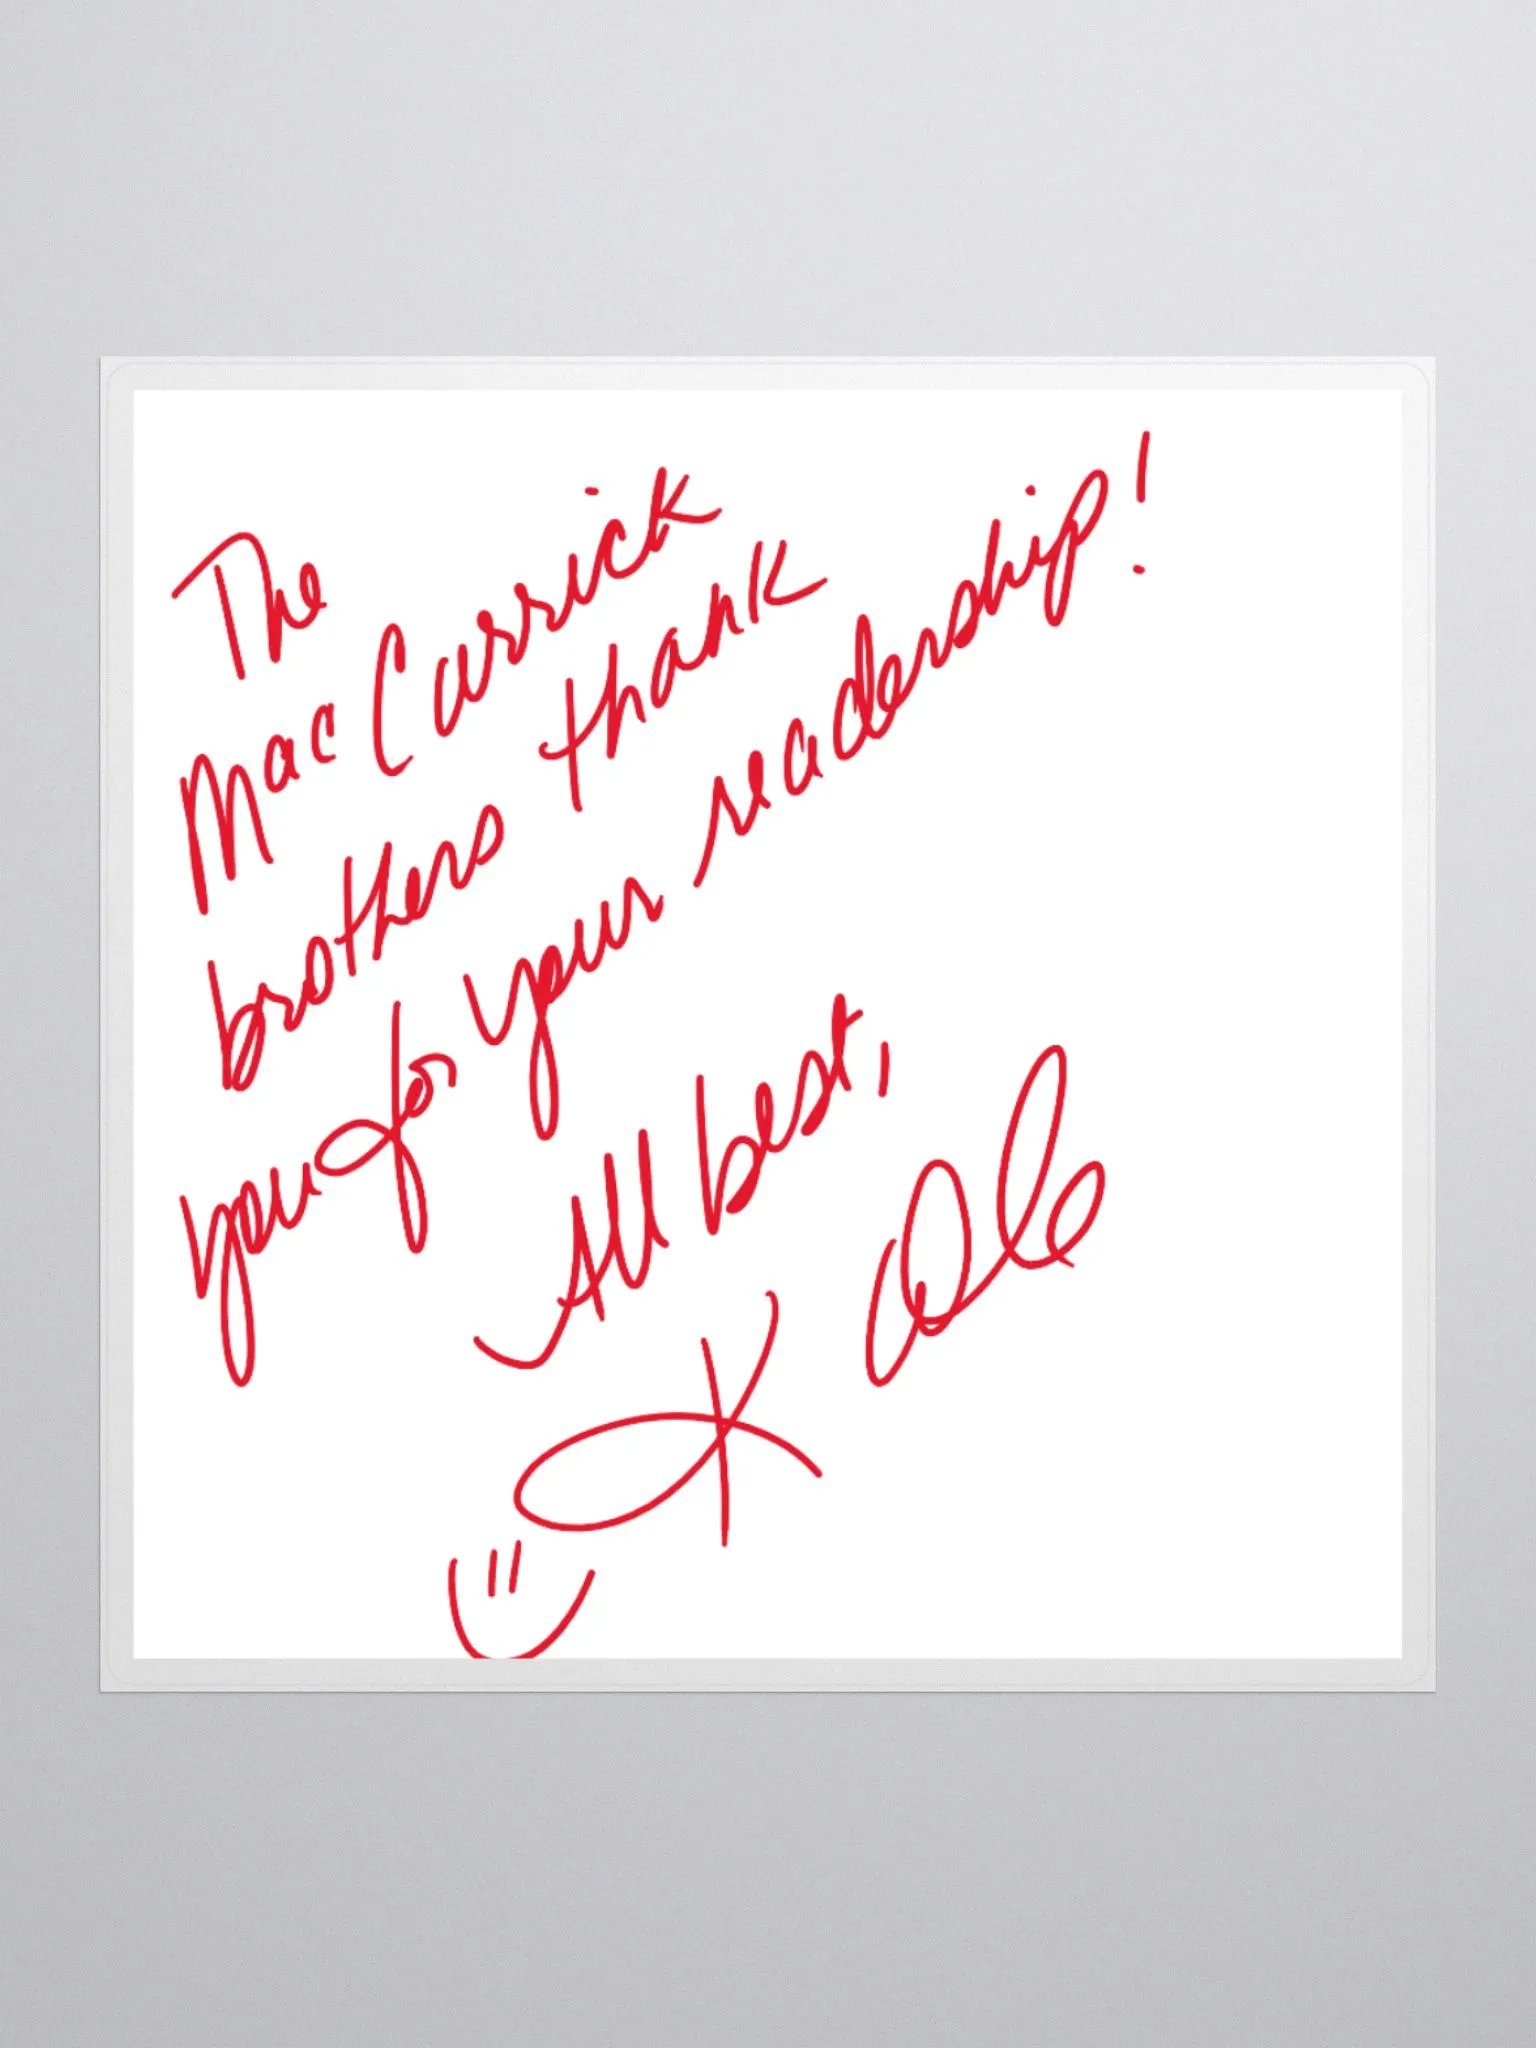 The
MacCarrick
brothers thank
you for your readership!
All best,
K Cole